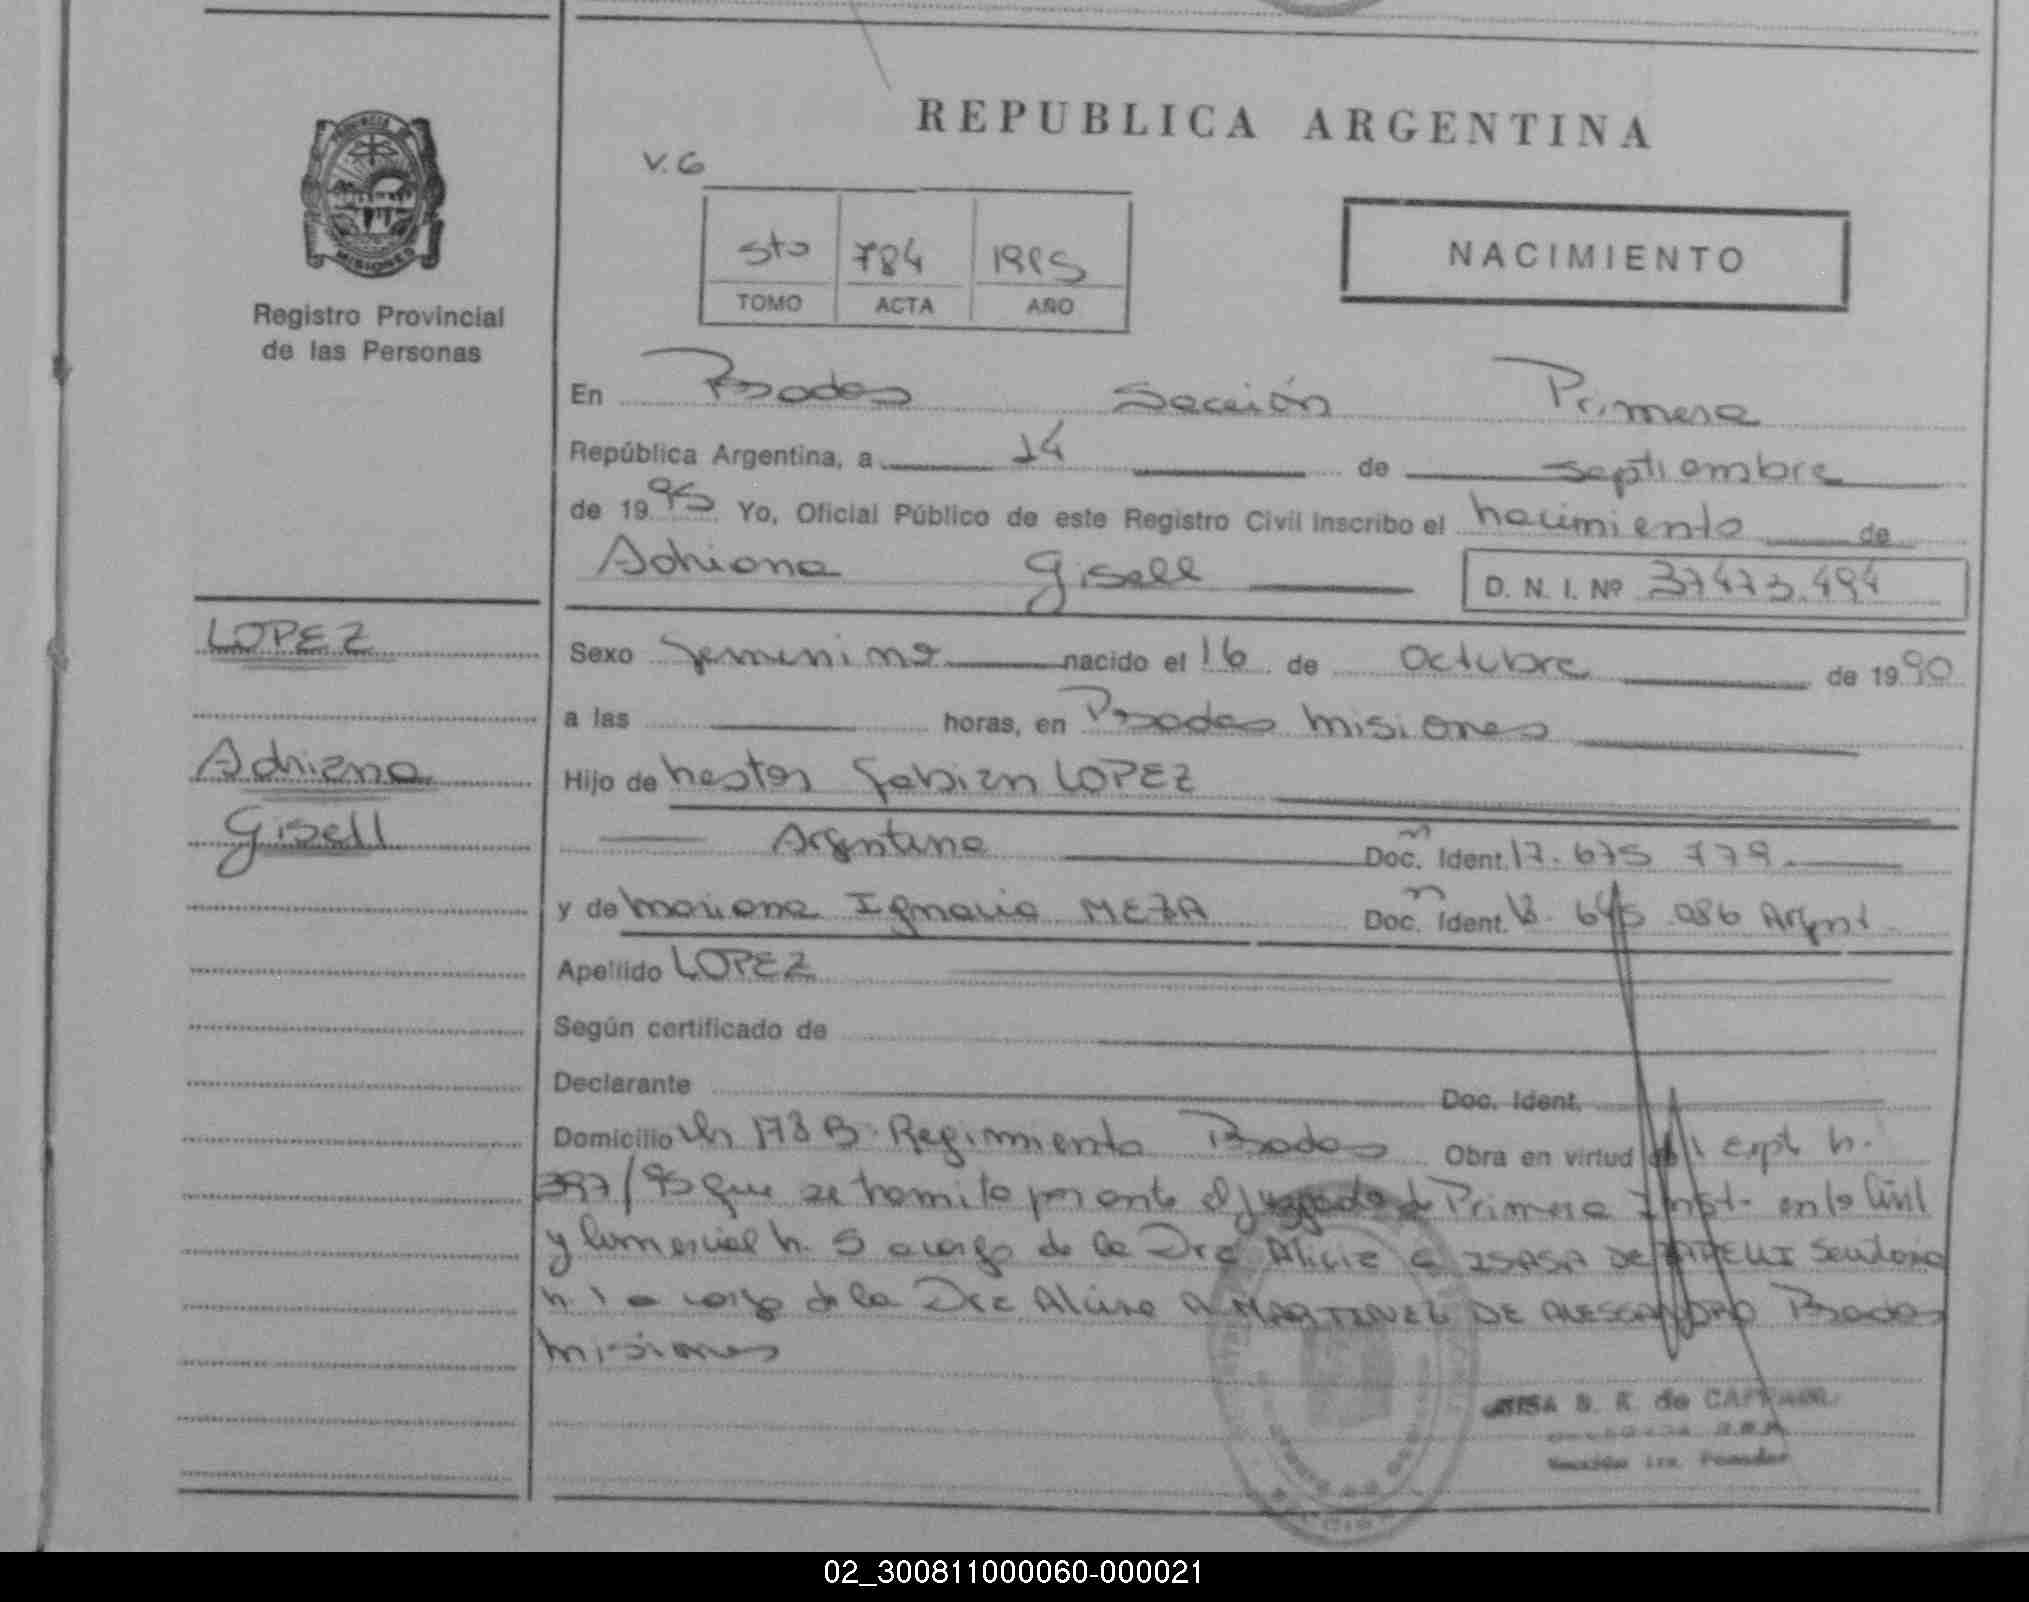 REPUBLICA ARGENTINA
V. 6
5to 784 1995
TOMO ACTA AÑO
NACIMIENTO
PROVINCIA D
MISIONES
Registro Provincial
de las Personas
En Posadas Sección Primera
República Argentina, a 14 de septiembre
de 1995 Yo, Oficial Público de este Registro Civil inscribo el nacimiento de
Adriana Gisell D. N. I. Nº 37473.494
LOPEZ
Adriana
Gisell
Sexo femenino nacido el 16 de Octubre de 1990
a las horas, en Posadas Misiones
Hijo de Nestor Fabian LOPEZ
Argentina Doc. Ident. 17.675 779.
y de Mariana Ignacia MEZA Doc. Ident. 18. 645 .086 Argent.
Apellido LOPEZ
Según certificado de
Declarante Doc. Ident.
Domicilio Ch 178 B. Regimiento Posadas Obra en virtud expte n.
397/95 que se tramita por ante el Juzgado de Primera Inst. en lo Civil
y Comercial n. 5 a cargo de la Dra Alicia C ISASA DE
n. 1 a cargo de la Dra A MARTINEZ DE ALESCANDRO Posadas
Misiones
S. R. de
Sección 1ra. Posadas
02_300811000060-000021